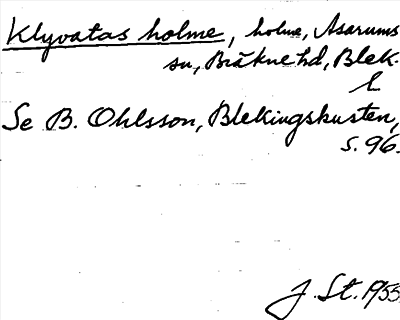 Klyvatas holme, holme, Asarums
sn, Bräkne hd, Blek.
Se B. Ohlsson, Blekingskusten,
s. 96.
J. St. 1955